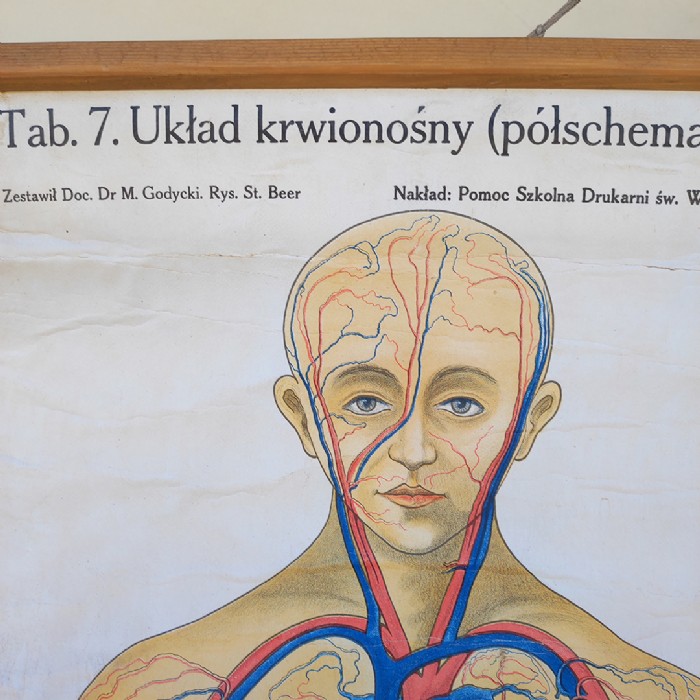 Tab. 7. Układ krwionośny (półschema
Zestawił Doc. Dr M. Godycki. Rys. St. Beer
Nakład: Pomoc Szkolna Drukarni św. W